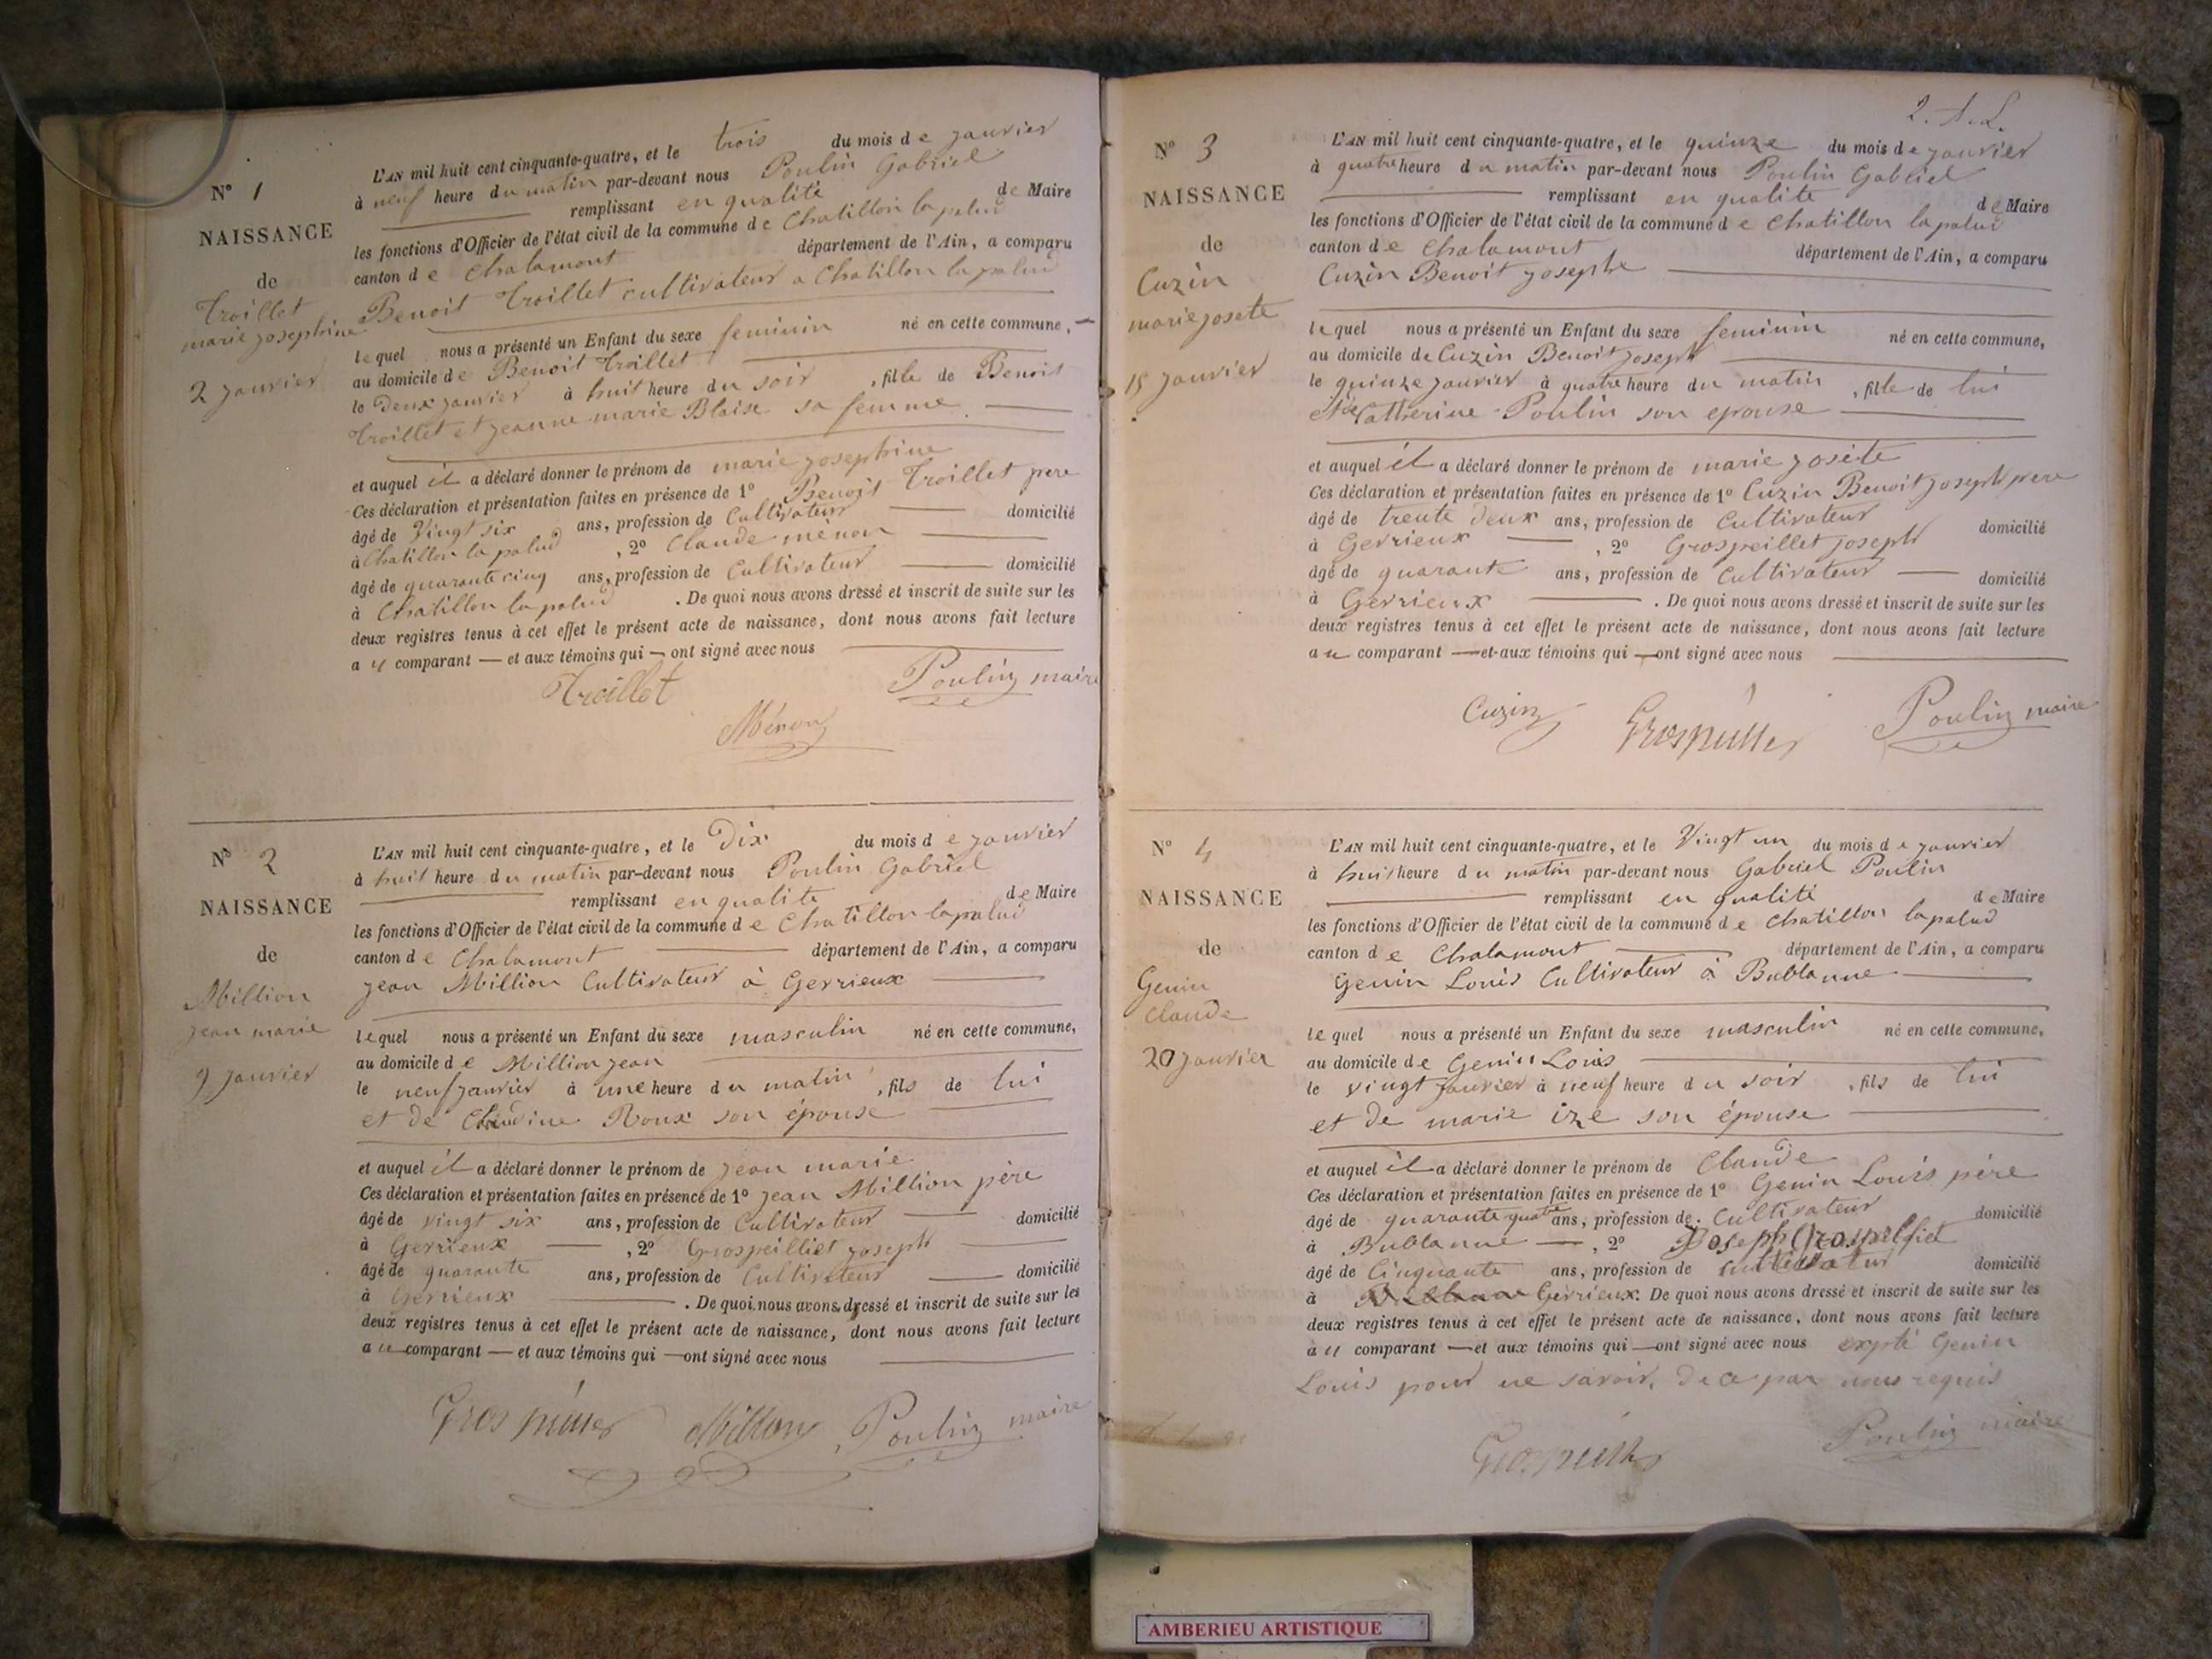 N° 1
NAISSANCE
de
Troillet
marie josephine
2 janvier
L'AN mil huit cent cinquante-quatre, et le trois du mois de janvier
à neuf heure du matin par-devant nous Poulin Gabriel
remplissant en qualité de Maire
les fonctions d'Officier de l'état civil de la commune de Chatillon la palud
canton de Chalamont département de l'Ain, a comparu
Benoit Troillet cultivateur a Chatillon la palud
lequel nous a présenté un Enfant du sexe feminin né en cette commune,
au domicile de Benoit Troillet
le Deux janvier à huit heure du soir, fille de Benoit
Troillet et jeanne marie Blaise sa femme
et auquel il a déclaré donner le prénom de marie josephine
Ces déclaration et présentation faites en présence de 1° Benoit Troillet pere
âgé de Vingt six ans, profession de Cultivateur domicilié
à Chatillon la palud, 2° Claude menon
âgé de quarante cinq ans, profession de Cultivateur domicilié
à Chatillon la palud. De quoi nous avons dressé et inscrit de suite sur les
deux registres tenus à cet effet le présent acte de naissance, dont nous avons fait lecture
au comparant — et aux témoins qui — ont signé avec nous
Troillet
Ménon
Poulin maire
N° 2
NAISSANCE
de
Million
jean marie
9 janvier
L'AN mil huit cent cinquante-quatre, et le Dix du mois de janvier
à huit heure du matin par-devant nous Poulin Gabriel
remplissant en qualité de Maire
les fonctions d'Officier de l'état civil de la commune de Chatillon la palud
canton de Chalamont département de l'Ain, a comparu
jean Million Cultivateur à Gerrieux
lequel nous a présenté un Enfant du sexe masculin né en cette commune,
au domicile de Million jean
le neuf janvier à une heure du matin, fils de lui
et de Claudine Roux son épouse
et auquel il a déclaré donner le prénom de jean marie
Ces déclaration et présentation faites en présence de 1° jean Million père
âgé de vingt six ans, profession de Cultivateur domicilié
à Gerrieux, 2° Grospeilliet joseph
âgé de quarante ans, profession de Cultivateur domicilié
à Gerrieux. De quoi nous avons dressé et inscrit de suite sur les
deux registres tenus à cet effet le présent acte de naissance, dont nous avons fait lecture
au comparant — et aux témoins qui — ont signé avec nous
Million Poulin maire
N° 3
NAISSANCE
de
Cuzin
marie josete
15 janvier
L'AN mil huit cent cinquante-quatre, et le quinze du mois de janvier
à quatre heure du matin par-devant nous Poulin Gabriel
remplissant en qualité de Maire
les fonctions d'Officier de l'état civil de la commune de Chatillon la palud
canton de Chalamont département de l'Ain, a comparu
Cuzin Benoit josephe
lequel nous a présenté un Enfant du sexe feminin né en cette commune,
au domicile de Cuzin Benoit joseph
le quinze janvier à quatre heure du matin, fille de lui
et de Catherine Poulin son epouse
et auquel il a déclaré donner le prénom de marie josete
Ces déclaration et présentation faites en présence de 1° Cuzin Benoit joseph pere
âgé de trente deux ans, profession de Cultivateur domicilié
à Gerrieux, 2° Grospeillet joseph
âgé de quarante ans, profession de Cultivateur domicilié
à Gerrieux. De quoi nous avons dressé et inscrit de suite sur les
deux registres tenus à cet effet le présent acte de naissance, dont nous avons fait lecture
au comparant — et aux témoins qui — ont signé avec nous
Cuzin Poulin maire
N° 4
NAISSANCE
de
Genin
Claude
20 janvier
L'AN mil huit cent cinquante-quatre, et le Vingt un du mois de janvier
à huit heure du matin par-devant nous Gabriel Poulin
remplissant en qualité de Maire
les fonctions d'Officier de l'état civil de la commune de Chatillon la palud
canton de Chalamont département de l'Ain, a comparu
Genin Louis Cultivateur à Bublanne
lequel nous a présenté un Enfant du sexe masculin né en cette commune,
au domicile de Genin Louis
le vingt janvier à neuf heure du soir, fils de lui
et de marie izé son épouse
et auquel il a déclaré donner le prénom de Claude
Ces déclaration et présentation faites en présence de 1° Genin Louis père
âgé de quarante quatre ans, profession de Cultivateur domicilié
à Bublanne, 2° Joseph Grospelliet
âgé de Cinquante ans, profession de cultivateur domicilié
à Gerrieux. De quoi nous avons dressé et inscrit de suite sur les
deux registres tenus à cet effet le présent acte de naissance, dont nous avons fait lecture
au comparant — et aux témoins qui — ont signé avec nous expté Genin
Louis pour ne savoir, de ce par nous requis
Poulin maire
AMBERIEU ARTISTIQUE